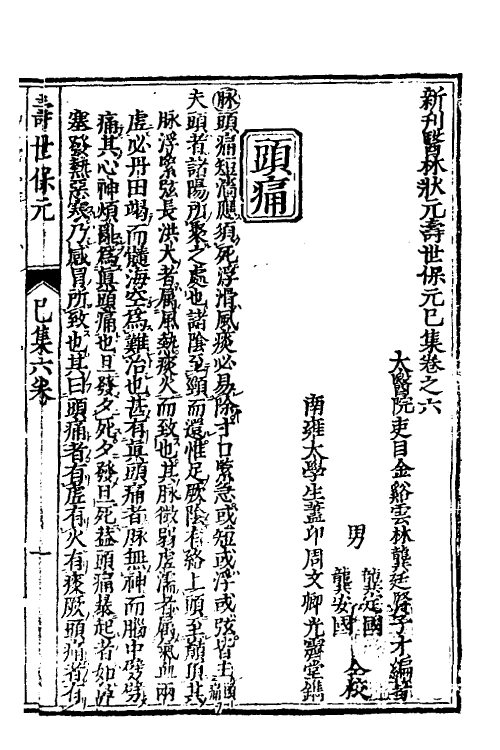 新刊醫林狀元壽世保元巳集卷之六
太醫院吏目金谿雲林龔廷賢子才編著
男
龔定國
龔安國
仝校
南雍太學生蓋卬周文卿光霽堂鐫
頭痛
脉頭痛短濇應須死浮滑風痰必易除寸口緊急或短或浮或弦皆主頭痛
夫頭者諸陽所聚之處也諸陰至頸而還惟足厥陰有絡上頭至巔頂其
脉浮緊弦長洪大者属風熱痰火而致也其脉微弱虛濡者属氣血兩
虛必丹田竭而髓海空爲難治也甚有眞頭痛者脉無神而腦中劈劈
痛其心神煩亂爲眞頭痛也旦發夕死夕發旦死葢頭痛暴起者如鼻
塞發熱惡寒乃感冒所致也其曰頭痛者有虛有火有痰厥頭痛者有
壽世保元
巳集六卷
一